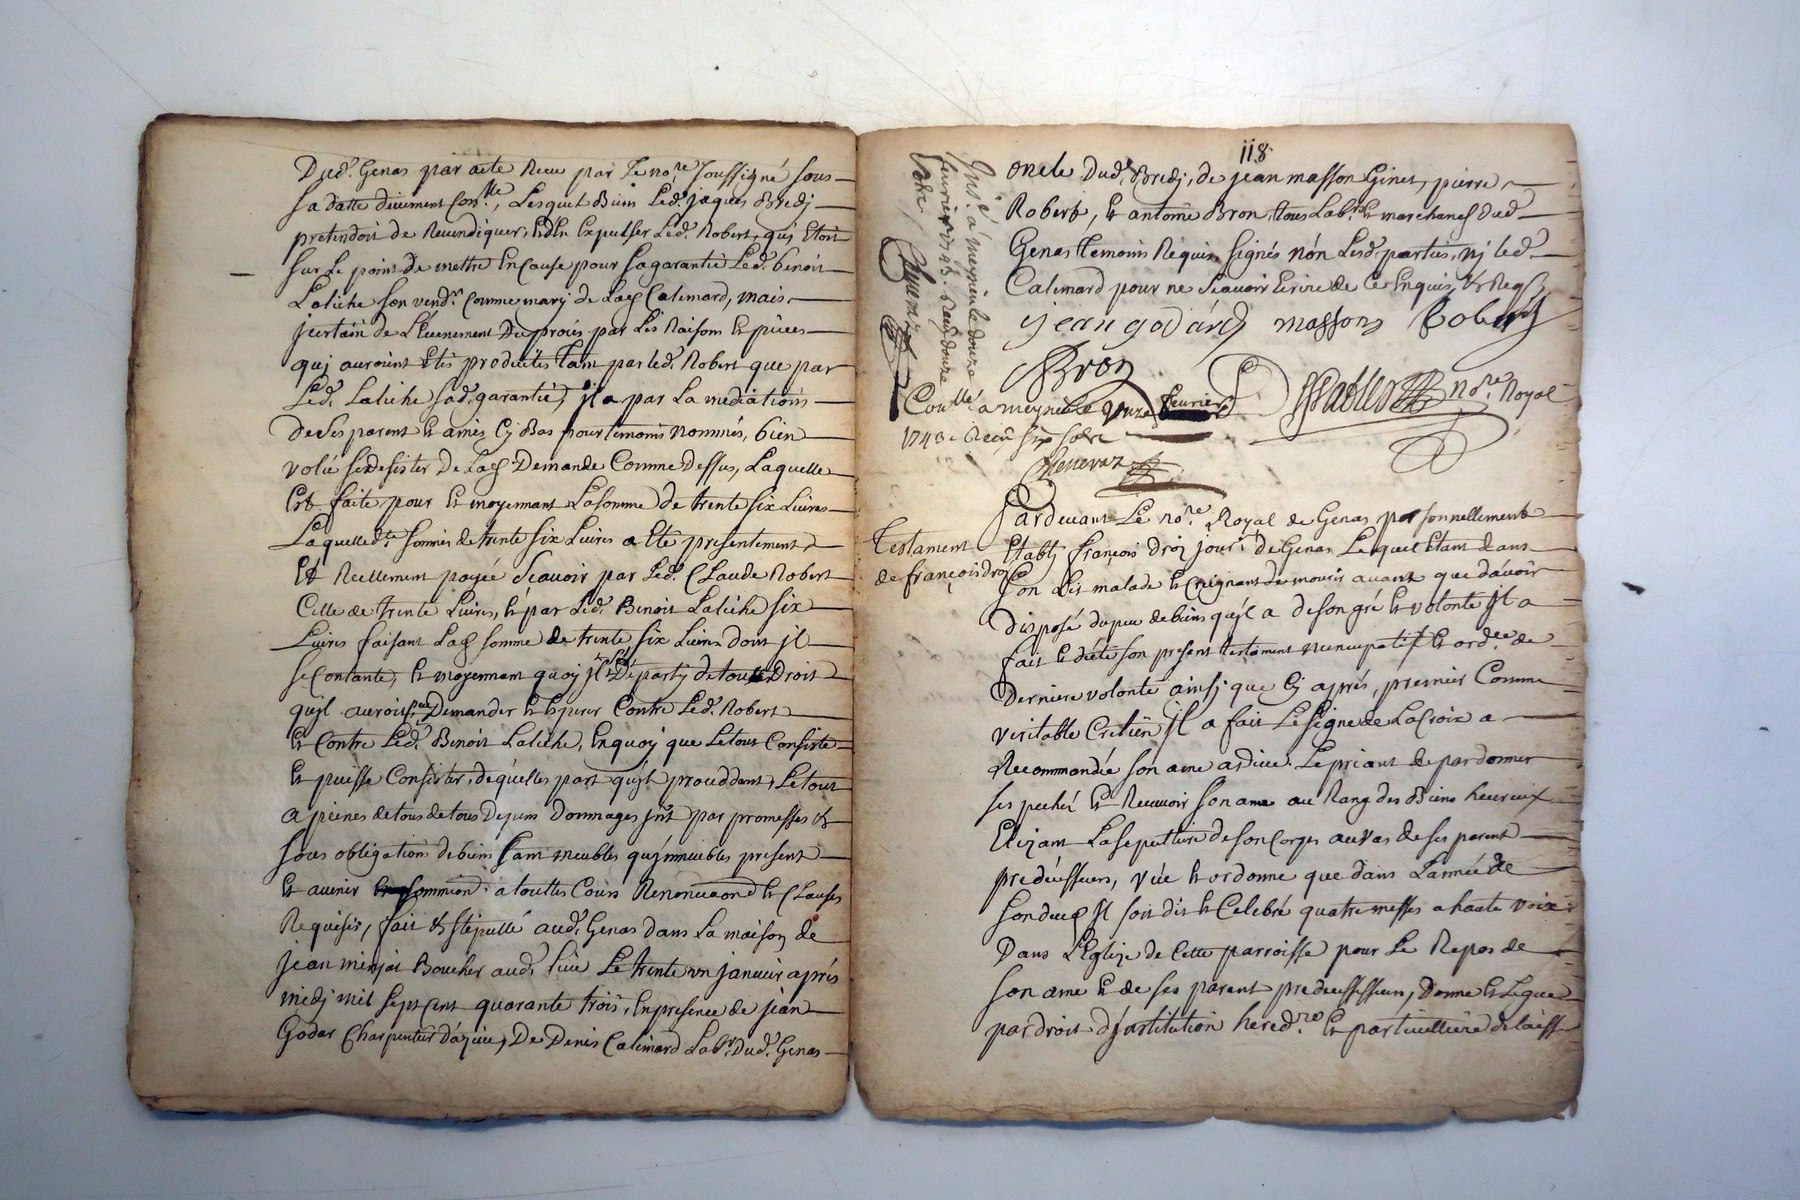 Dud. Genas par acte Receu par Le no.re soussigné sous
sa datte duement Con.llé, Lesquels Biens Led. jaques Bredj
pretendoit de Reuendiquer, Et d'En Expulser Led. Robert, quj Etoit
sur Le point de mettre En Cause pour sa garantie Led. benoit
Laliche son vend.r Comme marj de Lad. Calimard, mais
jncertain de L'Euenement Du procés par Les Raisons Et pieces
quj auroint Etés produites Tant par led. Robert que par
Led. Laliche sad. garantie, jl a par La mediations
de ses parent Et amies Cy Bas pour temoins Nommés, bien
volu se desister de Lad. Demande Comme Dessus, Laquelle
Est faite pour Et moyennant La somme de trente six Liures
Laquelle d.te somme de trente six Liures a Eté presentement
Et Reellement payée Scauoir par Led. Claude Robert
Celle de trente Liures, Et par Led. Benoit Laliche six
Liures faisant Lad. somme de trente six Liures dont jl
se Contante, Et moyennant quoy jl s'est Departy de tout Droit
qujl auroit peu Demander Et Exiger Contre Led. Robert
Et Contre Led. Benoit Laliche, En quoy que Le tout Consiste
Et puisse Consister, de quelles part qujl prouiddant, Le tout
a peines de tous depens Dommages jnt. par promesses Et
sous obligations de biens tant meubles qujmmeubles present
Et auenir soummiond. a touttes Cours Renonciaond Et Clauses
Requises, fait Et stipullé aud. Genas dans La maison de
jean minjat Boucher aud. Lieu Le trente vn januier aprés
midj mil sept Cent quarante trois, En presence de jean
Godar Charpentier d'azieu, De Denis Calimard Lab.r Dud. Genas
118
oncle Dud. Bredj, de jean masson Ginet, pierre
Robert, Et antoine Bron, tous Lab.rs Et marchands dud.
Genas temoins Requis signés non Lesd. parties, nj led.
Calimard pour ne Scauoir Ecrire de Ce Enquis Et Req.
jean godard massons Robert
Bron
no.re Royal
Con.llé a meyzieu Le onze feurier
1743. Receu six sols
Cheneuaz
Ins.é a meyzieu le douze
feurier 1743. Receu douze
sols
Cheneuaz
Testament
de françois droz
Pardeuant Le no.re Royal de Genas personnellement
Etably françois droz jour.r de Genas Lequel Etant dans
son Lit malade Et Craignant de mourir auant que d'auoir
disposé du peu de biens qujl a de son gré Et volonté jl a
fait Et dicté son present testament nuncupatif Et ord.ce de
Derniere volonté ainsj que Cy aprés, premier Comme
veritable Cretien jl a fait Le signe de La Croix a
Recommandée son ame a dieu Le priant de pardonner
ses peché Et Receuoir son ame au Rang des Biens heureux
Elizant La sepulture de son Corps au vas de ses parent
predecesseurs, veut Et ordonne que dans L'année de
son deces jl soit dit Et Celebré quatre messes a haute voix
Dans L'Eglize de Cette parroisse pour Le Repos de
son ame Et de ses parent predecessseurs, Donne Et Legue
par droit d'jnstitution hered.re Et particulliere delaisse